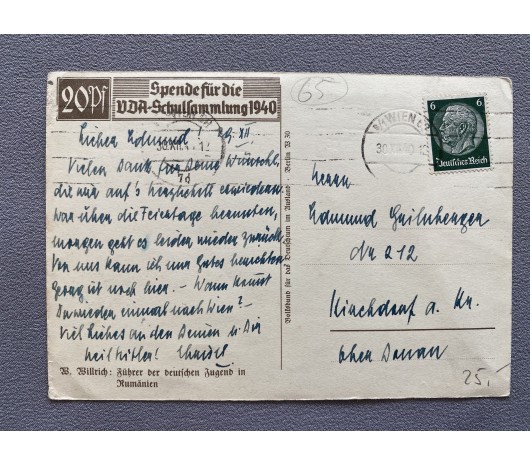 20 Pf
Spende für die
VDA-Schulsammlung 1940
65
Lieber Edmund! 29. XII.
Vielen Dank für Deine Wünsche,
die wir auf's herzlichste erwiedern.
War über die Feiertage
morgen geht es leider wieder zurück.
Von uns kann ich nur Gutes berichten
ist noch hier. – Wann kommst
Du wieder einmal nach Wien? –
Viel Liebes an den Deinen u. Dir
Heil Hitler!
W. Willrich: Führer der deutschen Jugend in
Rumänien
Volksbund für das Deutschtum im Ausland - Berlin W 30
WIEN
30.XII.40.12
6 6
Deutsches Reich
Herrn
Edmund
No 212
Kirchdorf a. Kr.
Ober Donau
25,-